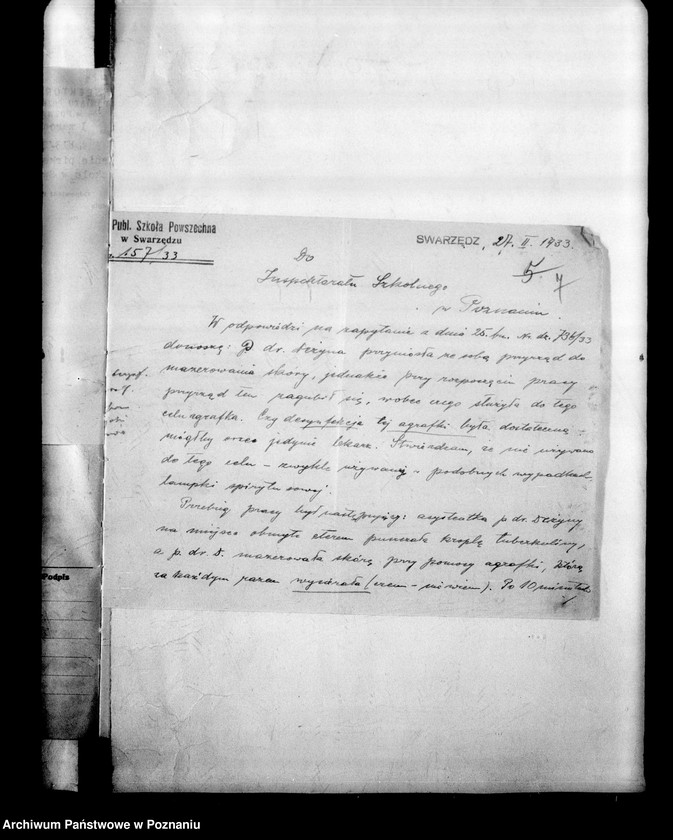 Publ. Szkoła Powszechna
w Swarzędzu
157/33
SWARZĘDZ, 27. II. 1933.
5
7
Do
Inspektoratu Szkolnego
w Poznaniu
W odpowiedzi na zapytanie z dnia 25. bm. Nr. dz. 736/33
donoszę: P dr. Dezyna przyniosła ze sobą przyrząd do
mazerowania skóry, jednakże przy rozpoczęciu pracy
przyrząd ten zagubił się, wobec czego służyła do tego
celu agrafka. Czy desynfekcja tej agrafki była dostateczną
mógłby orzec jedynie lekarz. Stwierdzam, że nie używano
do tego celu – zwykle używanej w podobnych wypadkach
lampki spirytusowej.
Przebieg pracy był następujący: asystentka p. dr. Dezyny
na miejsce obmyte eterem puszczała kroplę tuberkuliny,
a p. dr. D. mazerowała skórę przy pomocy agrafki, którą
za każdym razem wycierała (czem – nie wiem). Po 10 minutach
Podpis
Archiwum Państwowe w Poznaniu